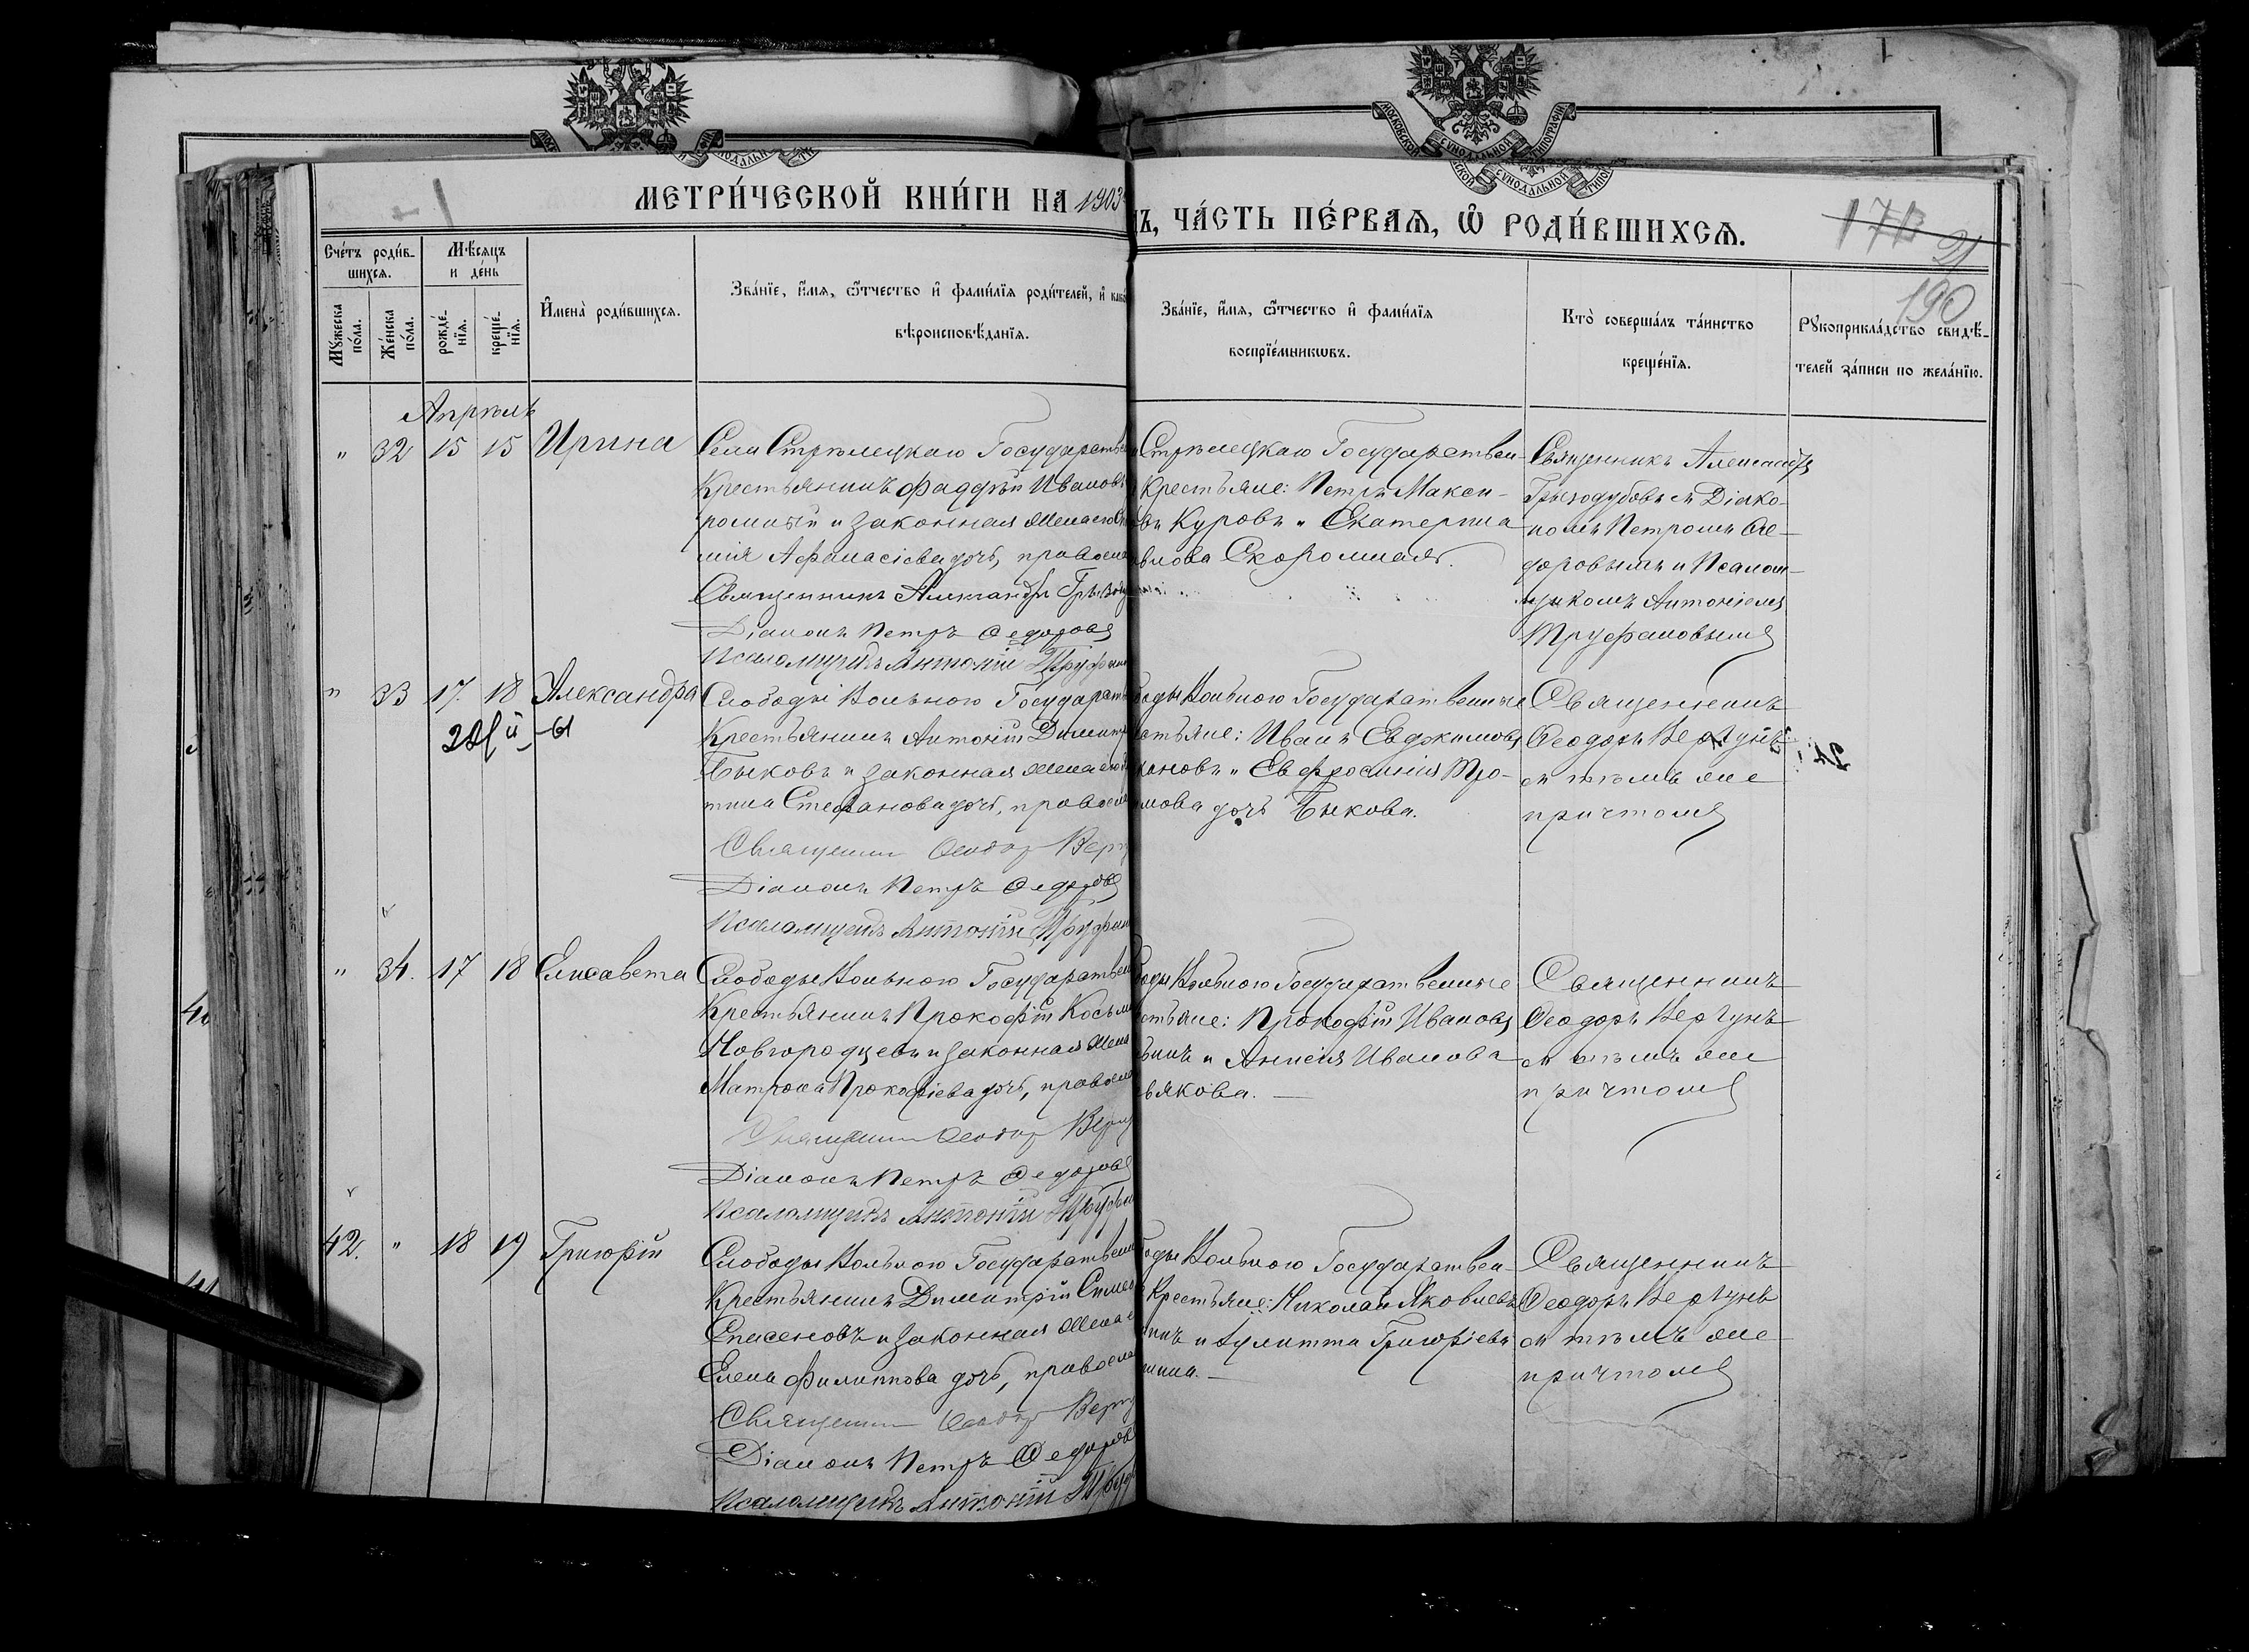 МЕТРИ́ЧЕСКОЙ КНИ́ГИ НА 1903
Ъ, ЧА́СТЬ ПЕ́РВАѦ, Ѡ҆ РОДИ́ВШИХСѦ.
178
21
190
Сче́тъ роди́в-
шихсѧ.
Мѣ́сѧцъ
и де́нь
Мꙋ́жеска
по́ла.
Же́нска
по́ла.
рожде́-
нїѧ.
креще́-
нїѧ.
И҆мена̀ роди́вшихсѧ.
Зва́нїе, и҆́мѧ, ѻ҆́тчество и҆ фами́лїѧ роди́телей, и҆ како
вѣроисповѣ́данїѧ.
Зва́нїе, и҆́мѧ, ѻ҆́тчество и҆ фами́лїѧ
воспрїе́мникѡвъ.
Кто̀ соверша́лъ та́инство
креще́нїѧ.
Рꙋкоприкла́дство свидѣ́-
телей за́писи по жела́нїю.
Апрѣль
" 32 15 15 Ирина
Села Стрѣлецкаго Государстве
Крестьянинъ Фаддѣй Иванов
ромный и законная жена его Ев
мія Афанасіева дочь, правосла
Священникъ Александръ Грызод
Діаконъ Петръ Ѳедоровъ
Псаломщикъ Антоній Труфан
Стрѣлецкаго Государствен-
Крестьяне: Петръ Макси-
въ Куровъ и Екатерина
влова Скоромная.
Священникъ Александръ
Грызодубовъ съ Діако-
номъ Петромъ Ѳе-
доровымъ и Псалом-
щикомъ Антоніемъ
Труфановымъ
" 33 17. 18 Александра
Слободы Вольною Государств
Крестьянинъ Антоній Димитр
Быковъ и законная жена его
тина Стефанова дочь, правосла
Священникъ Ѳеодор Верг
Діаконъ Петръ Ѳедоровъ
Псаломщикъ Антоній Труфан
боды Вольною Государственные
стьяне: Иванъ Евдокимовъ
кановъ и Евфросинія Тро-
имова дочь Быкова.
Священникъ
Ѳеодоръ Вергунъ
съ тѣмъ же
причтомъ
" 34. 17 18 Елисавета
Слободы Вольною Государствен
Крестьянинъ Прокофій Косьм
Новгородцевъ и законная жена
Матрона Прокофіева дочь, правосла
Священникъ Ѳеодор Верг
Діаконъ Петръ Ѳедоровъ
Псаломщикъ Антоній Труфан
боды Вольною Государственные
стьяне: Прокофій Ивановъ
инъ и Анисія Иванова
вякова.
Священникъ
Ѳеодоръ Вергунъ
съ тѣмъ же
причтомъ
42. " 18 19 Григорій
Слободы Вольною Государствен
Крестьянинъ Димитрій Симео
Спасеновъ и законная жена е
Елена Филиппова дочь, правосла
Священникъ Ѳеодор Верг
Діаконъ Петръ Ѳедоров
Псаломщикъ Антоній Труф
боды Вольною Государствен-
Крестьяне: Николай Яковлевъ
инъ и Іулитта Григоріева
шина.
Священникъ
Ѳеодоръ Вергунъ
съ тѣмъ же
причтомъ